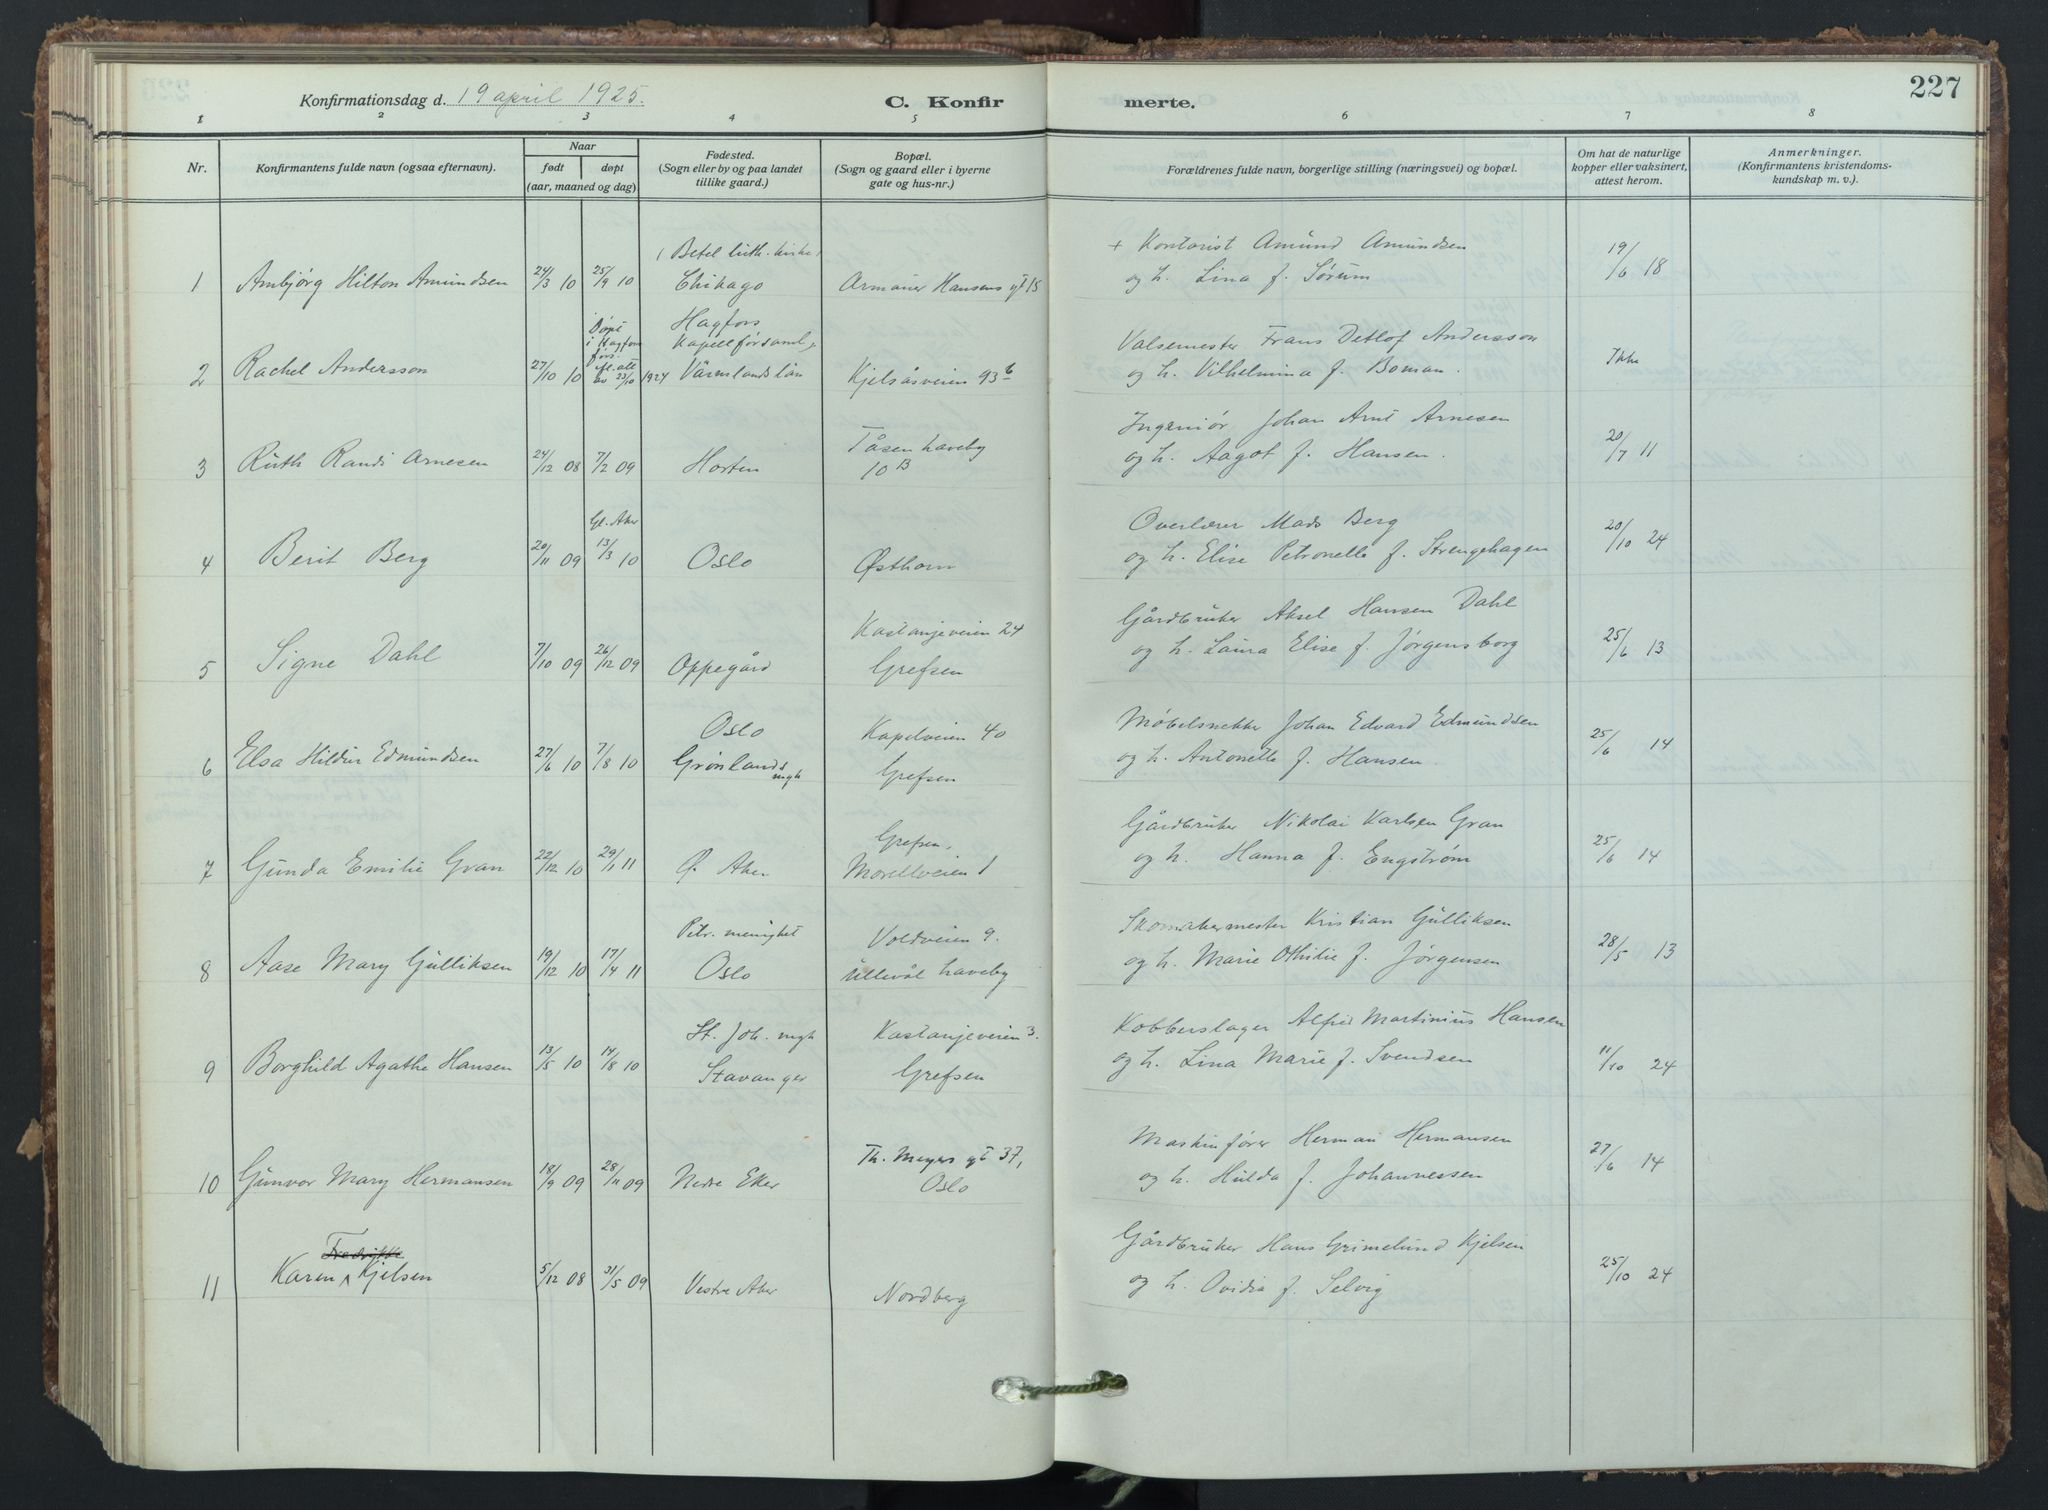 227
Konfirmationsdag d. 19 april 1925.
C. Konfirmerte.
1 2 3 4 5 6 7 8
Nr.
Konfirmantens fulde navn (ogsaa efternavn).
Naar
født
døpt
(aar, maaned og dag)
Fødested.
(Sogn eller by og paa landet
tillike gaard.)
Bopæl.
(Sogn og gaard eller i byerne
gate og hus-nr.)
Forældrenes fulde navn, borgerlige stilling (næringsvei) og bopæl.
Om hat de naturlige
kopper eller vaksinert,
attest herom.
Anmerkninger.
(Konfirmantens kristendoms-
kundskap m. v.).
(Betel luth. kirke)
+ Kontorist Amund Amundsen
1 Ambjørg Hilton Amundsen 24/3 10 25/9 10 Chikago Armauer Hansens gt 15 og h. Lina f. Sørum 19/6 18
Døpt i Hagfors Hagfors
Kapellförsaml.
Valsemester Frans Detlof Andersson
2 Rachel Andersson 27/10 10 av 23/10 1924 Värmlands län Kjelsåsveien 93 b og h. Vilhelmina f. Boman. Ikke
Tåsen haveby
Ingeniør Johan Arnt Arnesen
3 Ruth Randi Arnesen 24/12 08 7/2 09 Horten 10 B og h. Aagot f. Hansen. 20/7 11
Gl. Aker
Overlærer Mads Berg
4 Berit Berg 20/11 09 13/3 10 Oslo Østhorn og h. Elise Petronelle f. Strengehagen 20/10 24
Kastanjeveien 24
Gårdbruker Aksel Hansen Dahl
5 Signe Dahl 7/10 09 26/12 09 Oppegård Grefsen og h. Laura Elise f. Jørgensborg 25/6 13
Oslo Kapelveien 40
Møbelsnekker Johan Edvard Edmundsen
6 Elsa Hildur Edmundsen 27/6 10 7/8 10 Grønlands mgh Grefsen og h. Antonette f. Hansen 25/6 14
Grefsen,
Gårdbruker Nikolai Karlsen Gran
7 Gunda Emilie Gran 22/12 10 29/1 11 Ø. Aker Morellveien 1 og h. Hanna f. Engstrøm 25/6 14
Petr. menighet Voldveien 9.
Skomakermester Kristian Gulliksen
8 Aase Mary Gulliksen 19/12 10 17/4 11 Oslo Ullevål haveby og h. Marie Othilie f. Jørgensen 28/5 13
St. Joh. mgh Kastanjeveien 3.
Kobberslager Alfred Martinius Hansen
9 Borghild Agathe Hansen 13/5 10 14/8 10 Stavanger Grefsen og h. Lina Marie f. Svendsen 11/10 24
Th. Meyers gt 37,
Maskinfører Herman Hermansen
10 Gunvor Mary Hermansen 18/9 09 28/11 09 Nedre Eker Oslo og h. Hulda f. Johannessen 27/6 14
Fredrikke
Gårdbruker Hans Grimelund Kjelsen
11 Karen Kjelsen 5/12 08 31/5 09 Vestre Aker Nordberg og h. Ovidia f. Selvig 25/10 24